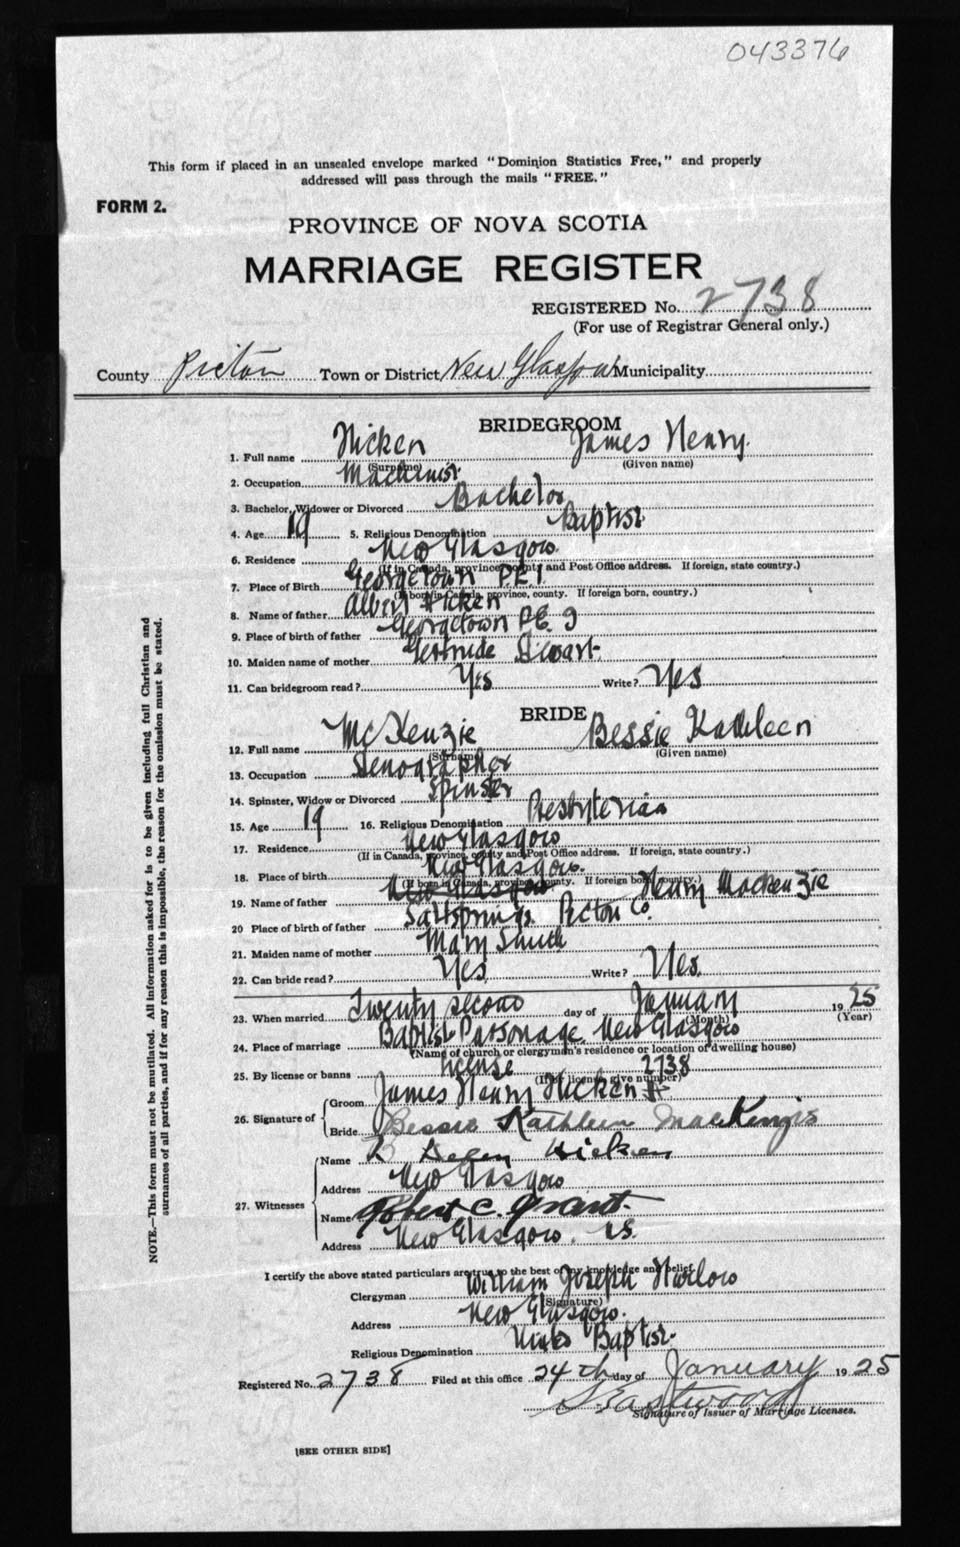 043376
This form if placed in an unsealed envelope marked "Dominion Statistics Free," and properly
addressed will pass through the mails "FREE."
FORM 2.
PROVINCE OF NOVA SCOTIA
MARRIAGE REGISTER
REGISTERED No. 2738
(For use of Registrar General only.)
County Pictou Town or District New Glasgow Municipality
BRIDEGROOM
1. Full name Hicken James Henry
(Surname) (Given name)
2. Occupation Machinist
3. Bachelor, Widower or Divorced Bachelor
4. Age 19 5. Religious Denomination Baptist
6. Residence New Glasgow
(If in Canada, province, county and Post Office address. If foreign, state country.)
7. Place of Birth Georgetown P.E.I.
(If born in Canada, province, county. If foreign born, country.)
8. Name of father Albert Hicken
9. Place of birth of father Georgetown P.E.I
10. Maiden name of mother Gertrude Stewart
11. Can bridegroom read? Yes Write? Yes
BRIDE
12. Full name McKenzie Bessie Kathleen
(Surname) (Given name)
13. Occupation Stenographer
14. Spinster, Widow or Divorced Spinster
15. Age 19 16. Religious Denomination Presbyterian
17. Residence New Glasgow
(If in Canada, province, county and Post Office address. If foreign, state country.)
18. Place of birth New Glasgow
(If born in Canada, province, county. If foreign born, country.)
19. Name of father New Glasgow Henry MacKenzie
20 Place of birth of father Saltsprings Pictou Co.
21. Maiden name of mother Mary Smith
22. Can bride read? Yes Write? Yes.
23. When married Twenty second day of January 1925
(Month) (Year)
24. Place of marriage Baptist Parsonage New Glasgow
(Name of church or clergyman's residence or location of dwelling house)
25. By license or banns License 2738
(If by license, give number)
26. Signature of Groom James Henry Hicken
Bride Bessie Kathleen MacKenzie
27. Witnesses Name Helen Hicken
Address New Glasgow
Name Robert C. Grant
Address New Glasgow. N.S.
I certify the above stated particulars are true to the best of my knowledge and belief.
Clergyman William Joseph
(Signature)
Address New Glasgow.
Religious Denomination Baptist
Registered No. 2738 Filed at this office 24th day of January 1925
Eastwood
Signature of Issuer of Marriage Licenses.
[SEE OTHER SIDE]
NOTE.—This form must not be mutilated. All information asked for is to be given including full Christian and
surnames of all parties, and if for any reason this is impossible, the reason for the omission must be stated.